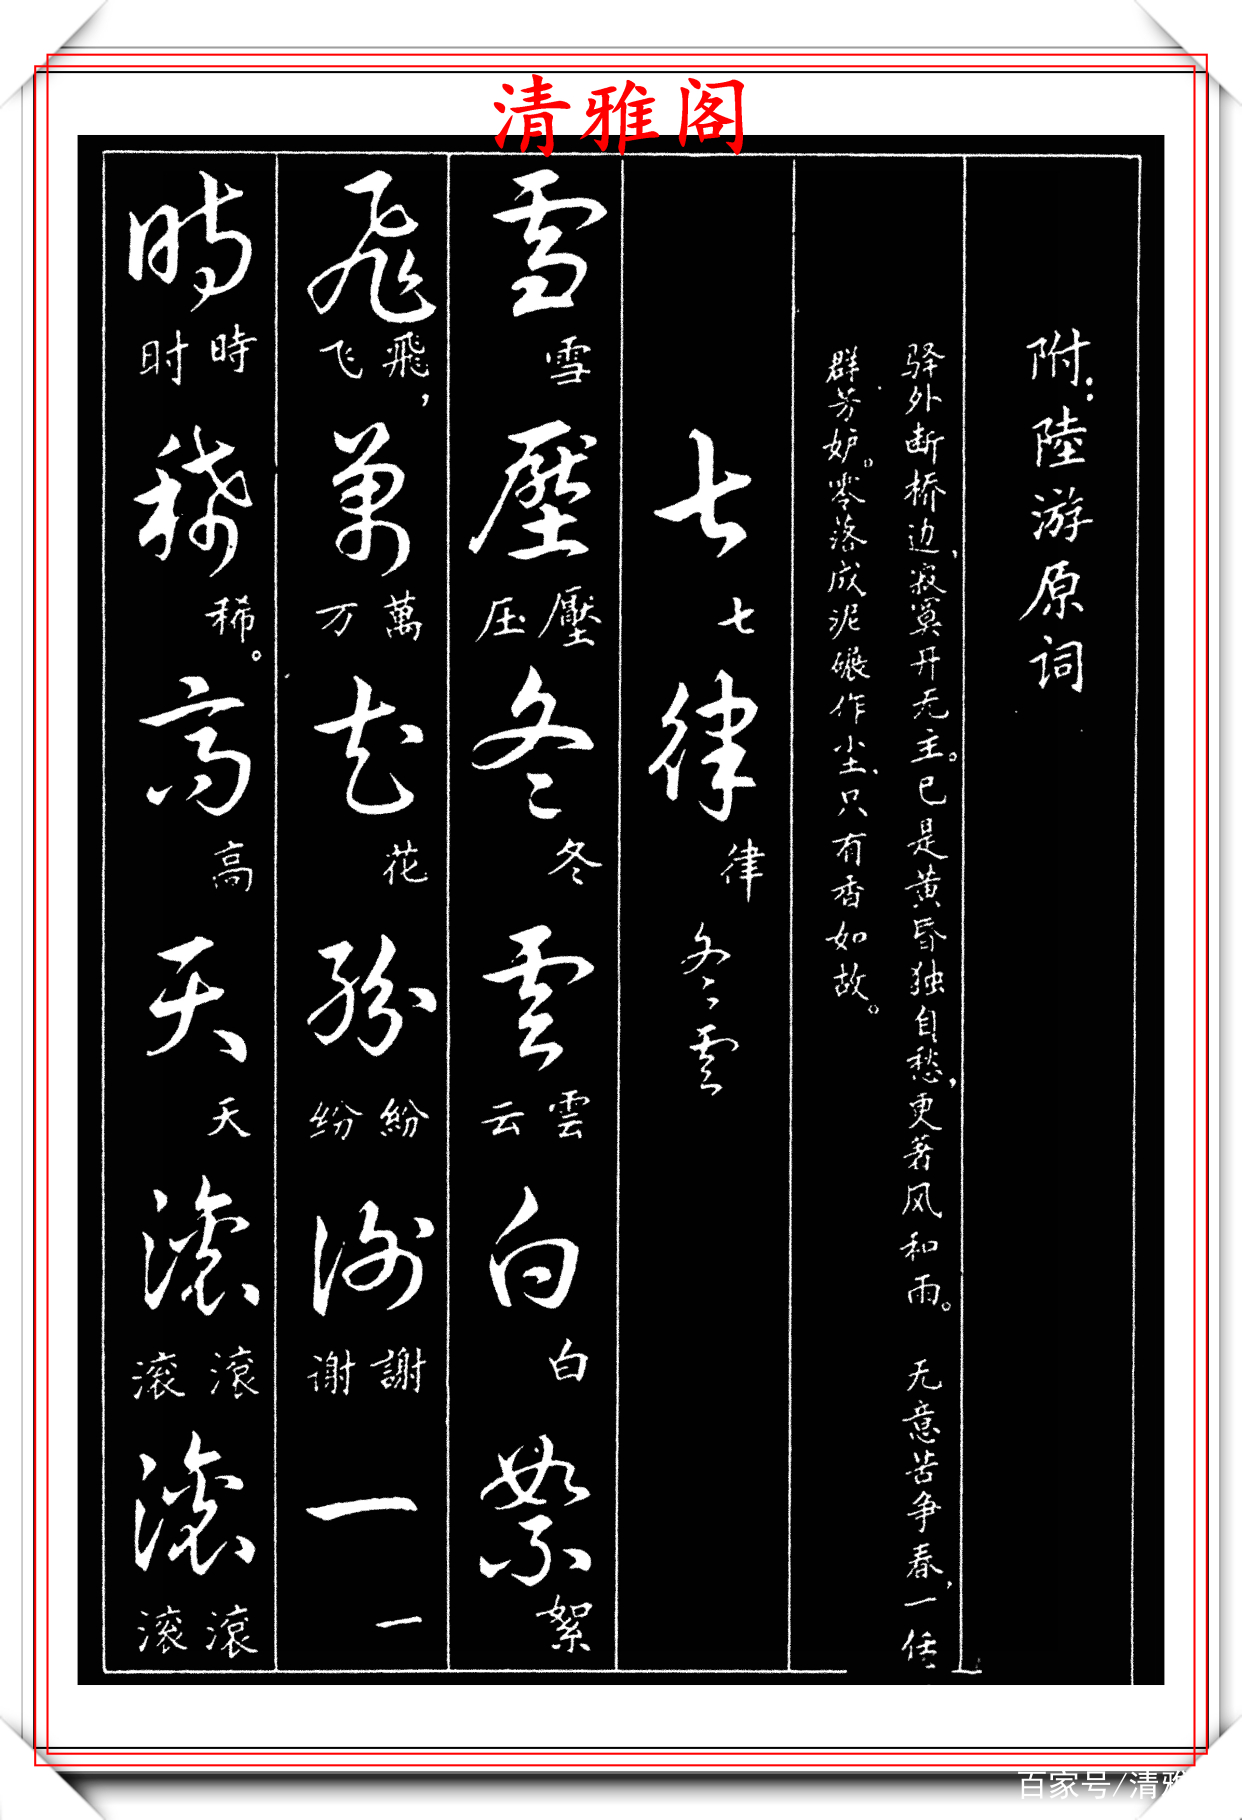 清雅阁
附：陸游原词
驿外断桥边，寂寞开无主。已是黄昏独自愁，更著风和雨。 无意苦争春，一任
群芳妒。零落成泥碾作尘，只有香如故。
七 七 律 律 冬雲
雪 雪 壓 壓 压 冬 冬 雲 雲 云 白 白 絮 絮
飛 飛， 飞 萬 萬 万 花 花 紛 紛 纷 謝 謝 谢 一 一
時 時 时 稀 稀。 高 高 天 天 滾 滾 滚 滾 滾 滚
百家号/清雅